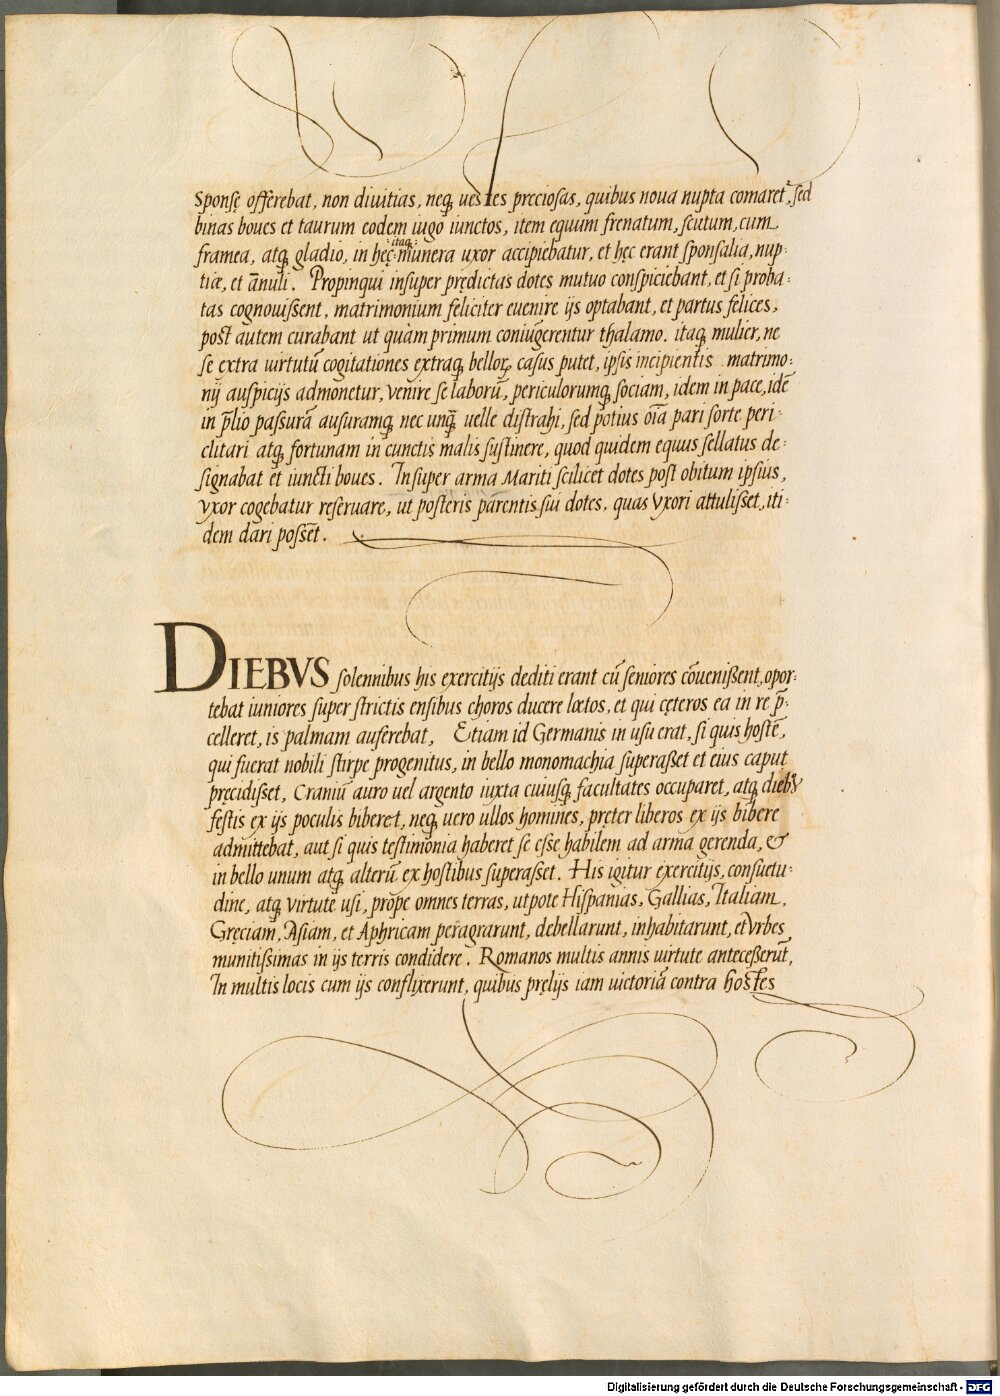 Sponsę offerebat, non diuitias, neq₃ uestes preciosas, quibus noua nupta comaret᷑, sed
binas boues et taurum eodem iugo iunctos, item equum frenatum, scutum, cum
framea, atq₃ gladio, in hęc itaq₃ munera uxor accipiebatur, et hęc erant sponsalia, nup-
tiæ, et ānuli. Propinqui insuper prędictas dotes mutuo conspiciebant, et si proba-
tas cognouissent, matrimonium feliciter euenire ijs optabant, et partus felices,
post autem curabant ut quàm primum coniūgerentur thalamo. itaq₃ mulier, ne
se extra uirtutū cogitationes extraq₃ belloꝝ casus putet, ipsis incipientis matrimo-
nij auspicijs admonetur, venire se laborū, periculorumq₃ sociam, idem in pace, idē
in p̄lio passurā ausuramq₃ nec unq̄ uelle distrahi, sed potius oīa pari sorte peri-
clitari atq₃ fortunam in cunctis malis sustinere, quod quidem equus sellatus de-
signabat et iuncti boues. Insuper arma Mariti scilicet dotes post obitum ipsius,
vxor cogebatur reseruare, ut posteris parentis sui dotes, quas vxori attulisset, iti-
dem dari possēt.
DIEBVS solennibus his exercitijs dediti erant cū seniores cōuenissent, opor-
tebat iuniores super strictis ensibus choros ducere lætos, et qui cęteros ea in re p̄-
celleret, is palmam auferebat, Etiam id Germanis in usu erat, si quis hostē,
qui fuerat nobili stirpe progenitus, in bello monomachia superasset et eius caput
pręcidisset, Craniū auro uel argento iuxta cuiusq₃ facultates occuparet, atq₃ diebꝰ
festis ex ijs poculis biberet, neq₃ uero ullos homines, pręter liberos ex ijs bibere
admittebat, aut si quis testimonia haberet se esse habilem ad arma gerenda, &
in bello unum atq₃ alterū ex hostibus superasset. His igitur exercitijs, consuetu-
dine, atq₃ virtute usi, prope omnes terras, utpote Hispanias, Gallias, Italiam,
Gręciam, Asiam, et Aphricam peragrarunt, debellarunt, inhabitarunt, et vrbes
munitissimas in ijs terris condidere. Romanos multis annis uirtute antecesserūt,
In multis locis cum ijs conflixerunt, quibus pręlijs iam uictoriā contra hostes
Digitalisierung gefördert durch die Deutsche Forschungsgemeinschaft - DFG